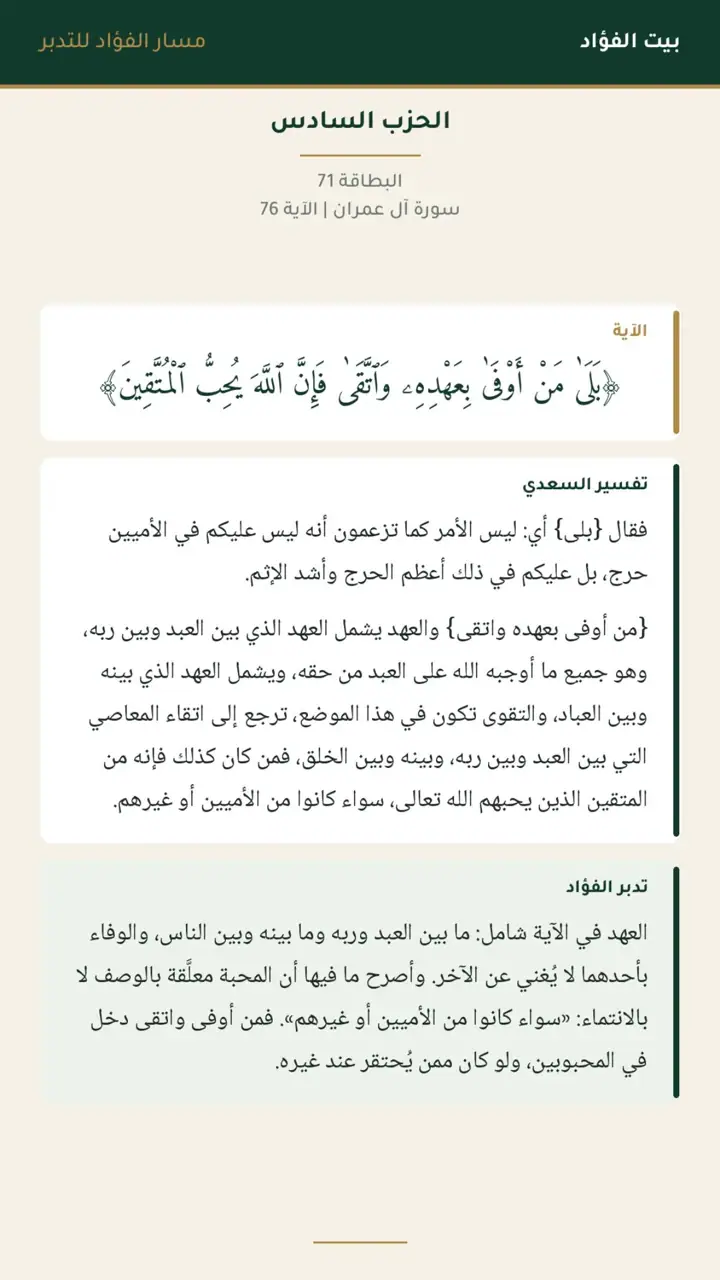 بيت الفؤاد
مسار الفؤاد للتدبر
الحزب السادس
البطاقة 71
سورة آل عمران | الآية 76
الآية
﴿بَلَىٰ مَنْ أَوْفَىٰ بِعَهْدِهِۦ وَٱتَّقَىٰ فَإِنَّ ٱللَّهَ يُحِبُّ ٱلْمُتَّقِينَ﴾
تفسير السعدي
فقال {بلى} أي: ليس الأمر كما تزعمون أنه ليس عليكم في الأميين
حرج، بل عليكم في ذلك أعظم الحرج وأشد الإثم.
{من أوفى بعهده واتقى} والعهد يشمل العهد الذي بين العبد وبين ربه،
وهو جميع ما أوجبه الله على العبد من حقه، ويشمل العهد الذي بينه
وبين العباد، والتقوى تكون في هذا الموضع، ترجع إلى اتقاء المعاصي
التي بين العبد وبين ربه، وبينه وبين الخلق، فمن كان كذلك فإنه من
المتقين الذين يحبهم الله تعالى، سواء كانوا من الأميين أو غيرهم.
تدبر الفؤاد
العهد في الآية شامل: ما بين العبد وربه وما بينه وبين الناس، والوفاء
بأحدهما لا يُغني عن الآخر. وأصرح ما فيها أن المحبة معلَّقة بالوصف لا
بالانتماء: «سواء كانوا من الأميين أو غيرهم». فمن أوفى واتقى دخل
في المحبوبين، ولو كان ممن يُحتقر عند غيره.